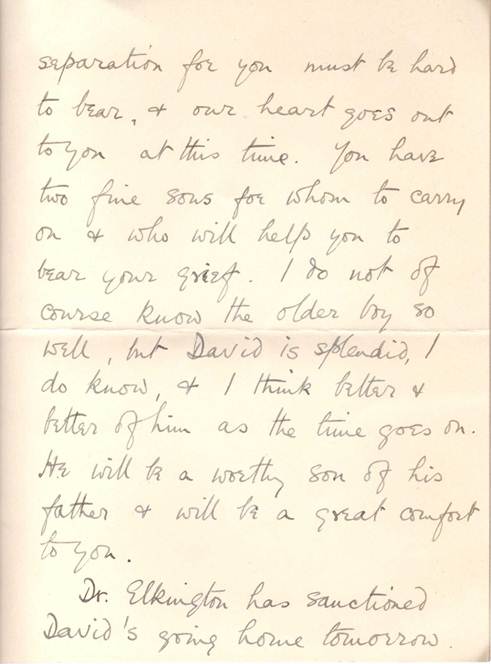 separation for you must be hard
to bear, & our heart goes out
to you at this time. You have
two fine sons for whom to carry
on & who will help you to
bear your grief. I do not of
course know the older boy so
well, but David is splendid, I
do know, & I think better &
better of him as the time goes on.
He will be a worthy son of his
father & will be a great comfort
to you.
Dr. Elkington has sanctioned
David's going home tomorrow.